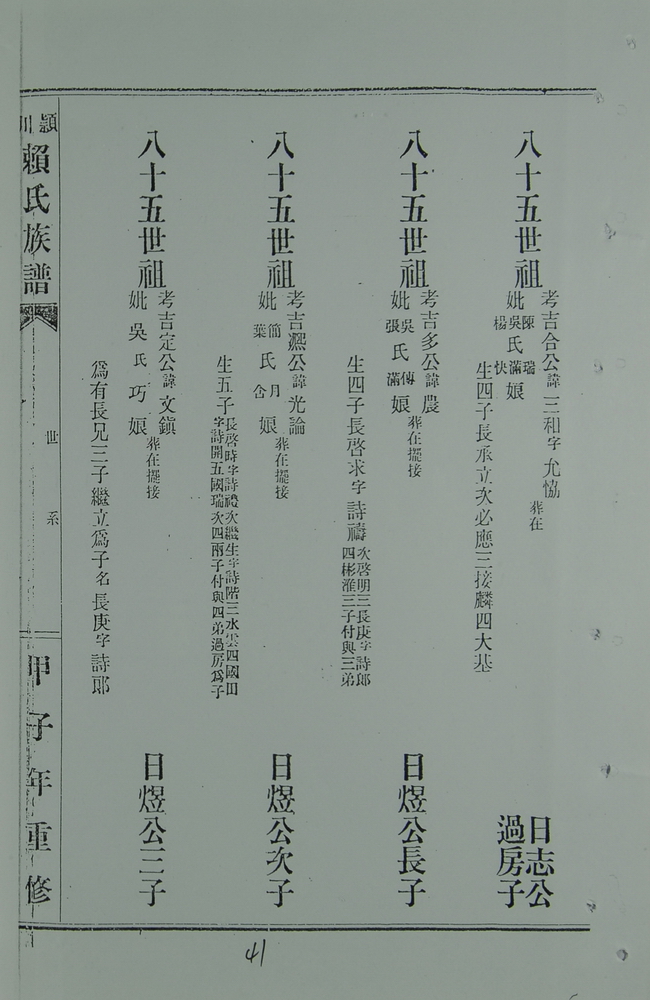 八十五世祖
考吉合公諱三和字允恊
妣陳吳楊氏瑞滿快娘
葬在
生四子長承立次必應三接麟四大基
日志公
過房子
八十五世祖
考吉多公諱農
妣吳張氏傳滿娘葬在擺接
生四子長啓求字詩禱次啓明三長庚字詩郎
四彬淮三子付與三弟
日煜公長子
八十五世祖
考吉凞公諱光論
妣簡葉氏月娘葬在擺接
生五子長啓時字詩禮次繼生字詩階三水雲四國田
字詩開五國瑞次四兩子付與四弟過房爲子
日煜公次子
八十五世祖
考吉定公諱文鎭
妣吳氏巧娘葬在擺接
爲有長兄三子繼立爲子名長庚字詩郎
日煜公三子
潁川賴氏族譜
世系
甲子年重修
41